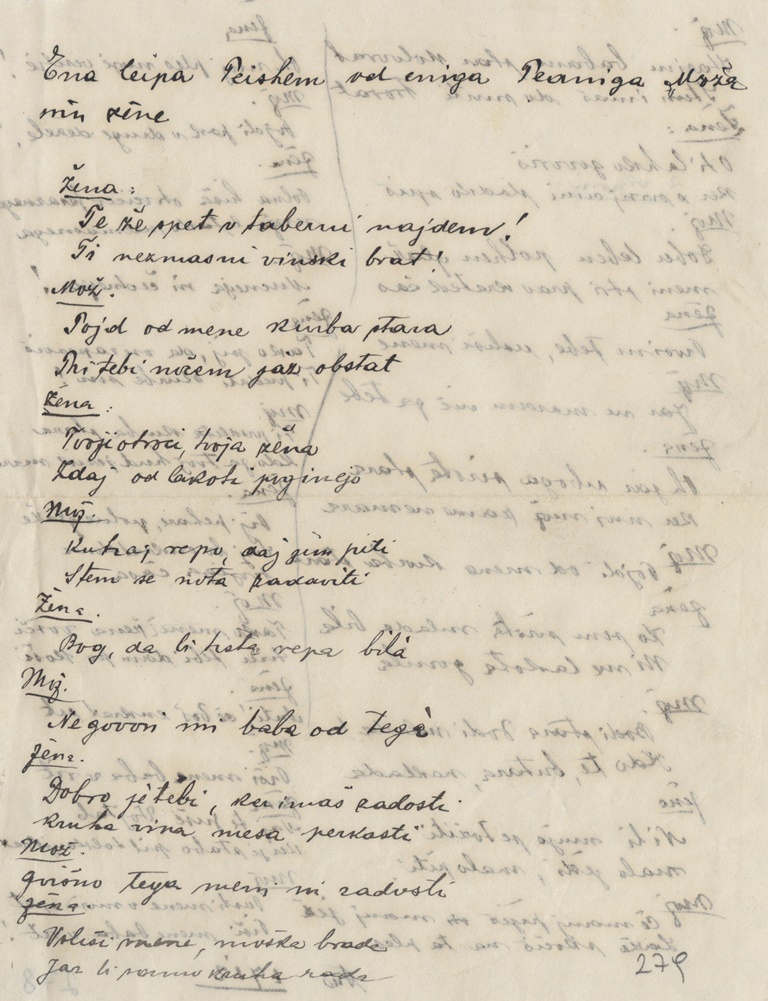 Ena leipa Peishem od eniga Pearniga Moža
nin žéne
Žena:
Te že spet v taberni najdem!
Ti nezmasni vinski brat!
Mož:
Pojd od mene kurba stara
Pri tebi nočem jaz obstat
Žena:
Tvoji otroci, tvoja žéna
Zdaj od lakoti poginejo
Mož.
Kuhaj repo, daj jim piti
Stem se nota zadaviti
Žéna.
Bog, da li tista repa bilá
Mož.
Ne govori mi baba od tegá
Žéna.
Dobro je tebi, ker imaš zadosti
kruha vina, mesa perkasti
Mož.
gvišno tega meni ni zadosti
Žéna
Uslisi mene, moška brada
Jaz bi samo kruha rada
279